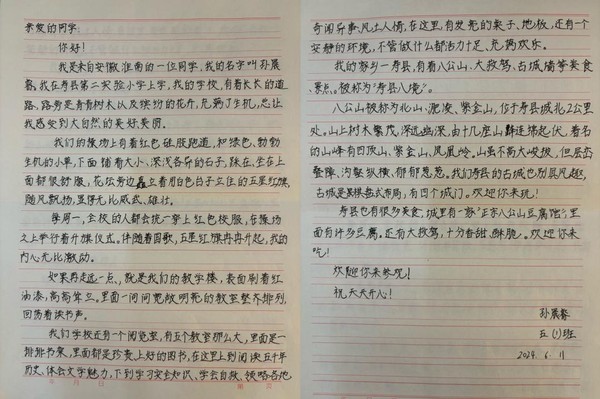 亲爱的同学:
你好!
我是来自安徽淮南的一位同学,我的名字叫孙晨
馨,我在寿县第二实验小学上学,我的学校,有着长长的道
路,路旁是青青树木以及缤纷的花卉,充满了生机,总让
我感受到大自然的美好、美丽。
我们的操场上有着红色硅胶跑道,和绿色、勃勃
生机的小草,下面铺着大小、深浅各异的石子,踩在、坐在上
面都很舒服,花坛旁边矗立着用白色台子立住的五星红旗,
随风飘扬,显得无比威武、雄壮。
每周一,全校的人都会统一穿上红色校服,在操场
之上举行着升旗仪式。伴随着国歌,五星红旗冉冉升起,我的
内心无比激动。
如果再走远一点,就是我们的教学楼,表面刷着红
油漆,高高耸立。里面一间间宽敞明亮的教室整齐排列,
回荡着读书声。
我们学校还有一个阅览室,有五个教室那么大,里面是一
排排书架,里面都是珍贵上好的图书,在这里上到阅读五千年
历史、体会文学魅力,下到学习安全知识、学会自救、领略各地
年 月 日
奇闻异事、风土人情,在这里,有发亮的桌子、地板,还有一个
安静的环境,不管做什么都活力十足、充满欢乐。
我的家乡—寿县,有着八公山、大救驾、古城墙等美食、
景点。被称为"寿县八境"。
八公山被称为北山、淝陵、紫金山,位于寿县城北2公里
处。山上树木繁茂,深远幽深,由十几座山群连绵起伏,著名
的山峰有四顶山、紫金山、凤凰岭。山虽不高大峻拔,但层峦
叠障、沟壑纵横、郁郁葱葱。我们寿县的古城也别具风趣,
古城是某棋盘式布局,有四个城门。欢迎你来玩!
寿县也有很多美食,城里有一家"正宗八公山豆腐馆",里
面有许多豆腐。还有大救驾,十分香甜、酥脆。欢迎你来
吃!
欢迎你来参观!
祝天天开心!
孙晨馨
五(1)班
2024 6 11